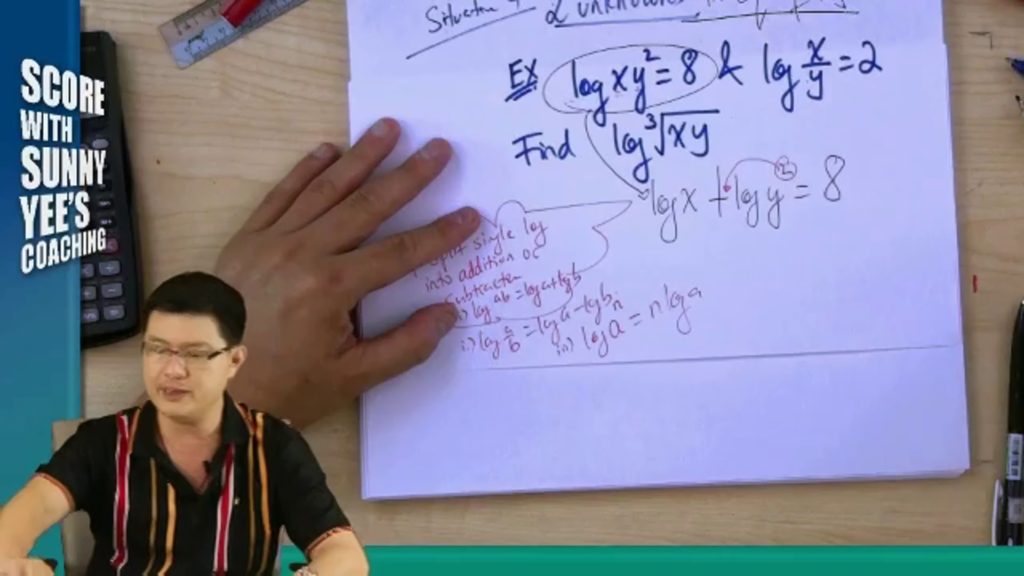 SCORE
WITH
SUNNY
YEE'S
COACHING
2 unknowns
EX log xy² = 8 & log x/y = 2
Find log ³√xy
log x + log y² = 8
split single log
into addition or
subtraction
log ab = log a + log b
ii) log a/b = log a - log b
iii) log aⁿ = n log a